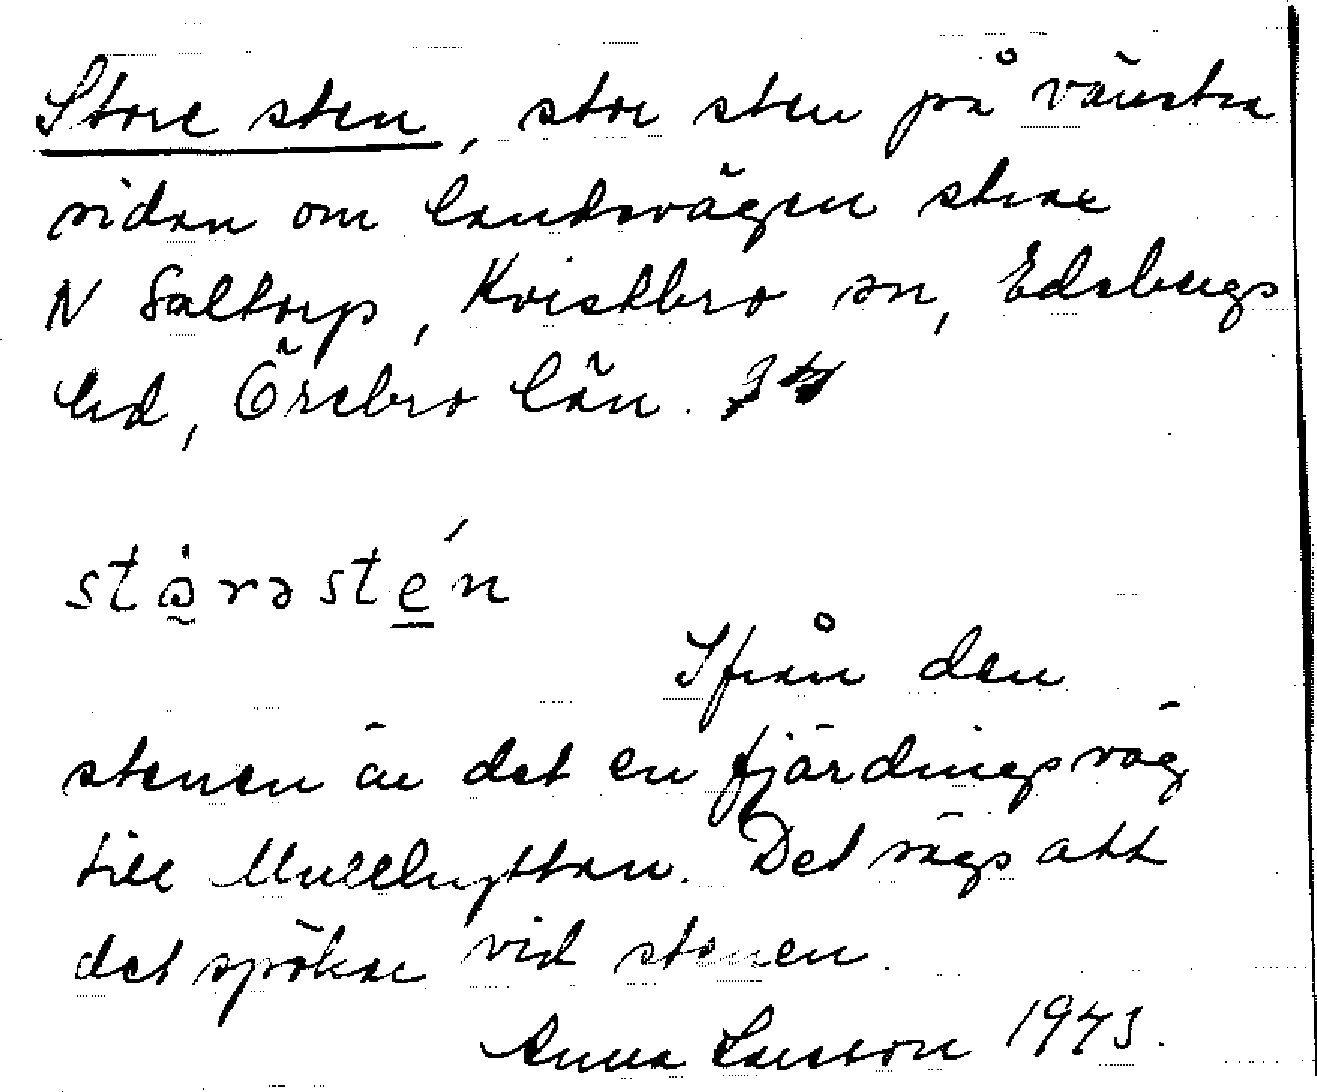 Store sten, stor sten på vänstra
sidan om landsvägen strax
N Saltorp, Kvistbro sn, Edsbergs
hd, Örebro län.
Ifrån den
stenen är det en fjärdingsväg
till Mullhyttan. Det sägs att
det spökar vid stenen.
Anna Larsson 1943.